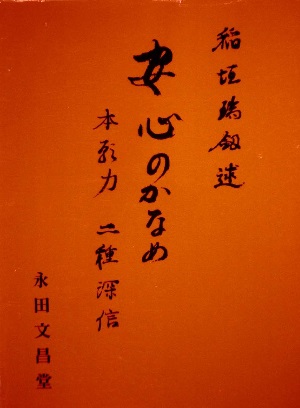 稲垣瑞劔述
安心のかなめ
本願力 二種深信
永田文昌堂